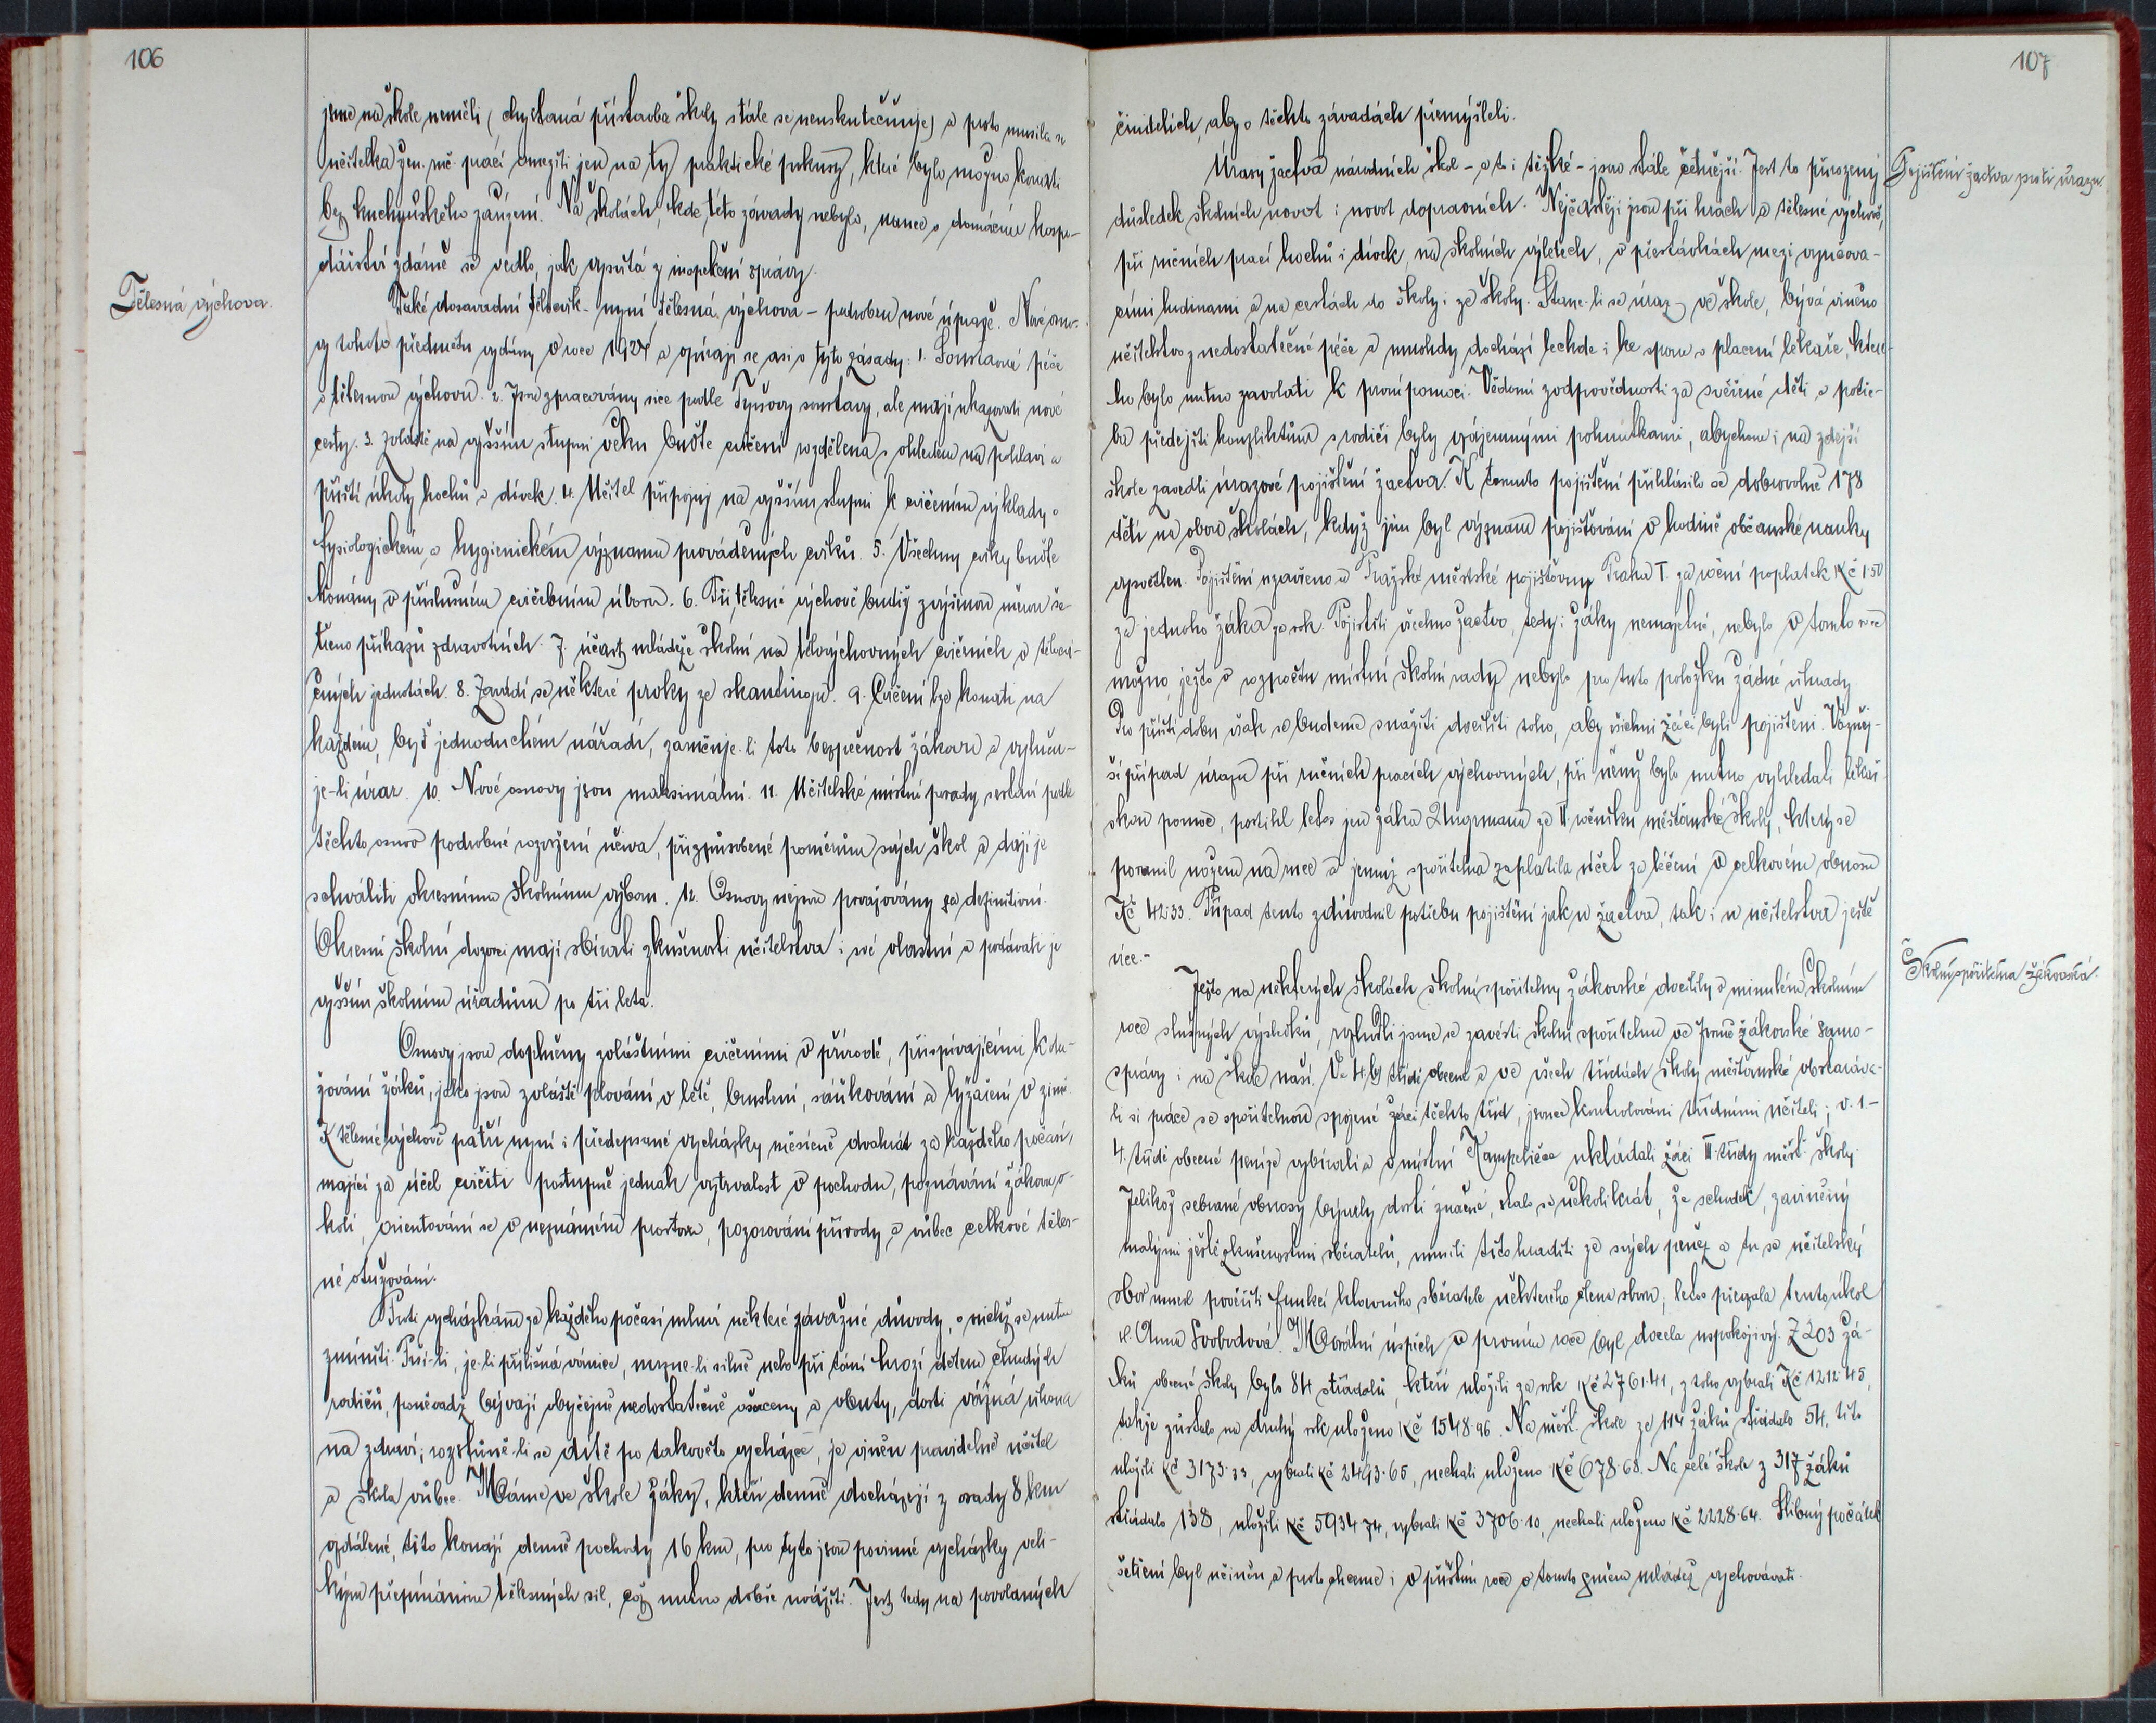 106
jsme na škole neměli (chystaná přístavba školy stále se neuskutečňuje) a proto musila se
učitelka žen. ruč. prací omeziti jen na ty praktické pokusy, které bylo možno konati
bez kuchyňského zařízení. Na školách, kde této závady nebylo, nauce o domácím hospo-
dářství zdárně se vedlo, jak vysvítá z inspekční zprávy.
Tělesná výchova.
Také dosavadní tělocvik - nyní tělesná výchova - podroben nové úpravě. Nové osno-
vy tohoto předmětu vydány v roce 1927 a opírají se asi o tyto zásady: 1. Soustavná péče
o tělesnou výchovu. 2. Jsou zpracovány sice podle Tyršovy soustavy, ale mají ukazovati nové
cesty. 3. Zvláště na vyšším stupni věku buďte cvičení rozdělena s ohledem na pohlaví a
příští úkoly hochů a dívek. 4. Učitel připojuj na vyšším stupni k cvičením výklady o
fysiologickém a hygienickém významu prováděných cviků. 5. Všechny cviky buďte
konány v příslušném cvičebním úboru. 6. Při tělesné výchově budiž zvýšenou měrou še-
třeno příkazů zdravotních. 7. účast mládeže školní na tělovýchovných cvičeních v tělocvi-
čných jednotách. 8. Zavádí se některé prvky ze skautingu. 9. Cvičení lze konati na
každém, byť jednoduchém nářadí, zaručuje-li toto bezpečnost žákovu a vyluču-
je-li úraz. 10. Nové osnovy jsou maksimální. 11. Učitelské místní porady sestaví podle
těchto osnov podrobné rozvržení učiva, přizpůsobené poměrům svých škol a dají je
schváliti okresnímu školnímu výboru. 12. Osnovy nejsou považovány za definitivní.
Okresní školní dozorci mají sbírati zkušenosti učitelstva i své vlastní a podávati je
vyšším školním úřadům po tři leta.
Osnovy jsou doplněny zvláštními cvičeními v přírodě, přispívajícími k otu-
žování žáků, jako jsou zvláště plování v létě, bruslení, sáňkování a lyžaření v zimě.
K tělesné výchově patří nyní i předepsané vycházky měsíčně dvakrát za každého počasí,
mající za účel cvičiti postupně jednak vytrvalost v pochodu, poznávání žákova o-
kolí, orientování se v neznámém prostoru, pozorování přírody a vůbec celkové těles-
né otužování.
Proti vycházkám za každého počasí mluví některé závažné důvody, o nichž se nutno
zmíniti. Prší-li, je-li přílišná vánice, mrzne-li silně nebo při tání hrozí dětem chudých
rodičů, poněvadž bývají obyčejně nedostatečně ošaceny a obuty, dosti vážná úhona
na zdraví; rozstůně-li se dítě po takovéto vycházce, je viněn pravidelně učitel
a škola vůbec. Máme ve škole žáky, kteří denně docházejí z osady 8 km
vzdálené, tito konají denně pochody 16 km, pro tyto jsou povinné vycházky veli-
kým přepínáním tělesných sil, což nutno dobře uvážiti. Jest tedy na povolaných
107
činitelích, aby o těchto závadách přemýšleli.
Pojištění žactva proti úrazu.
Úrazy žactva národních škol - a to i těžké - jsou stále četnější. Jest to přirozený
důsledek školních novot i novot dopravních. Nejčastěji jsou při hrách a tělesné výchově,
při ručních prací hochů i dívek, na školních výletech, v přestávkách mezi vyučova-
cími hodinami a na cestách do školy i ze školy. Stane-li se úraz ve škole, bývá viněno
učitelstvo z nedostatečné péče a mnohdy dochází leckde i ke sporu o placení lékaře, které-
ho bylo nutno zavolati k první pomoci. Vědomí zodpovědnosti za svěřené děti a potře-
ba předejíti konfliktům s rodiči byly vzájemnými pohnutkami, abychom i na zdejší
škole zavedli úrazové pojištění žactva. K tomuto pojištění přihlásilo se dobrovolně 178
dětí na obou školách, když jim byl význam pojišťování v hodině občanské nauky
vysvětlen. Pojištění uzavřeno u Pražské městské pojišťovny Praha I. za roční poplatek Kč 1·50
za jednoho žáka za rok. Pojistiti všechno žactvo, tedy i žáky nemajetné, nebylo v tomto roce
možno, ježto v rozpočtu místní školní rady nebylo pro tuto položku žádné úhrady.
Pro příští dobu však se budeme snažiti docíliti toho, aby všichni žáci byli pojištěni. Vážněj-
ší případ úrazu při ručních pracích výchovných, při němž bylo nutno vyhledati lékař-
skou pomoc, postihl letos jen žáka Zungmanna ze II. ročníku měšťanské školy, který se
poranil nožem na ruce a jemuž spořitelna zaplatila účet za léčení v celkovém obnosu
Kč 42·33. Případ tento zdůvodnil potřebu pojištění jak u žactva, tak i u učitelstva ještě
více.-
Školní spořitelna žákovská.
Ježto na některých školách školní spořitelny žákovské docílily v minulém školním
roce slušných výsledků, rozhodli jsme se zavésti školní spořitelnu ve formě žákovské samo-
správy i na škole naší. Ve 4. tř. třídě obecné a ve všech třídách školy měšťanské obstaráva-
li si práce se spořitelnou spojené žáci těchto tříd, jsouce kontrolováni třídními učiteli; v 1.-
4. třídě obecné peníze vybírali a v místní Kampeličce ukládali žáci III. třídy měšť. školy.
Jelikož sebrané obnosy bývaly dosti značné, stalo se několikrát, že schodek, zaviněný
malými ještě zkušenostmi sběratelů, musili tito hraditi ze svých peněz a tu se učitelský
sbor usnesl pověřiti funkcí hlavního sběratele některého člena sboru; letos převzala tento úkol
sl. Anna Svobodová. Morální úspěch v prvním roce byl docela uspokojivý. Z 203 žá-
ků obecné školy bylo 84 střádalů, kteří uložili za rok Kč 2761·41, z toho vybrali Kč 1212·45,
takže zůstalo na druhý rok uloženo Kč 1548·96. Na měšť. škole ze 114 žáků střádalo 54, tito
uložili Kč 3173·33, vybrali Kč 2493·65, nechali uloženo Kč 678·68. Na celé škole z 317 žáků
střádalo 138, uložili Kč 5934·74, vybrali Kč 3706·10, nechali uloženo Kč 2228·64. Slibný počátek
šetření byl učiněn a proto chceme i v příštím roce v tomto směru mládež vychovávati.